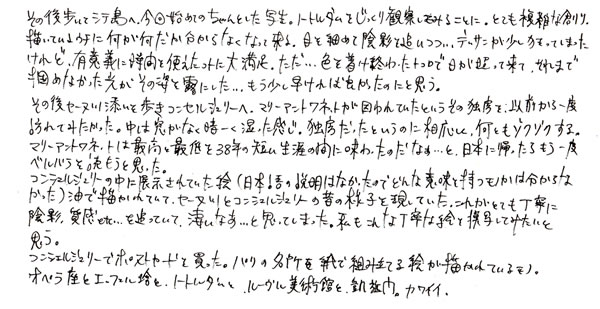 その後歩いてシテ島へ。今回始めてのちゃんとした写生。ノートルダムをじっくり観察してみることに。とても複雑な創り。
描いているうちに何が何だか分からなくなって来る。目を細めて陰影を追いつつ…。デッサンが少しくるってしまった
けれど、有意義に時間を使えたコトに大満足。ただ…色を着け終わったトコロで日が照って来て、それまで
掴めなかった光がその姿を露にした…もう少し早ければ良かったのにと思う。
その後セーヌ川に添いを歩きコンセルジュリーへ。マリーアントワネットが囚われていたというその独房を、以前から一度
訪れてみたかった。中は窓がなく暗ーく湿った感じ。独房だったというのに相応しく、何ともゾクゾクする。
マリーアントワネットは最高と最低を38年の短い生涯の間に味わったのだなぁ…と、日本に帰ったらもう一度
ベルバラを読もうと思った。
コンシェルジュリーの中に展示されていた絵(日本語の説明はなかったのでどんな意味を持つモノかは分からな
かった)油で描かれていて、セーヌ川とコンシェルジュリーの昔の様子を現していた。これがとても丁寧に
陰影、質感など…を追っていて、凄いなぁ…と思ってしまった。私もこんな丁寧な絵を模写してみたいと
思う。
コンシェルジュリーでポストカードを買った。パリの名所を紙で組み立てる絵が描かれているモノ。
オペラ座とエッフェル塔と、ノートルダムと、ルーヴル美術館と、凱旋門。カワイイ。